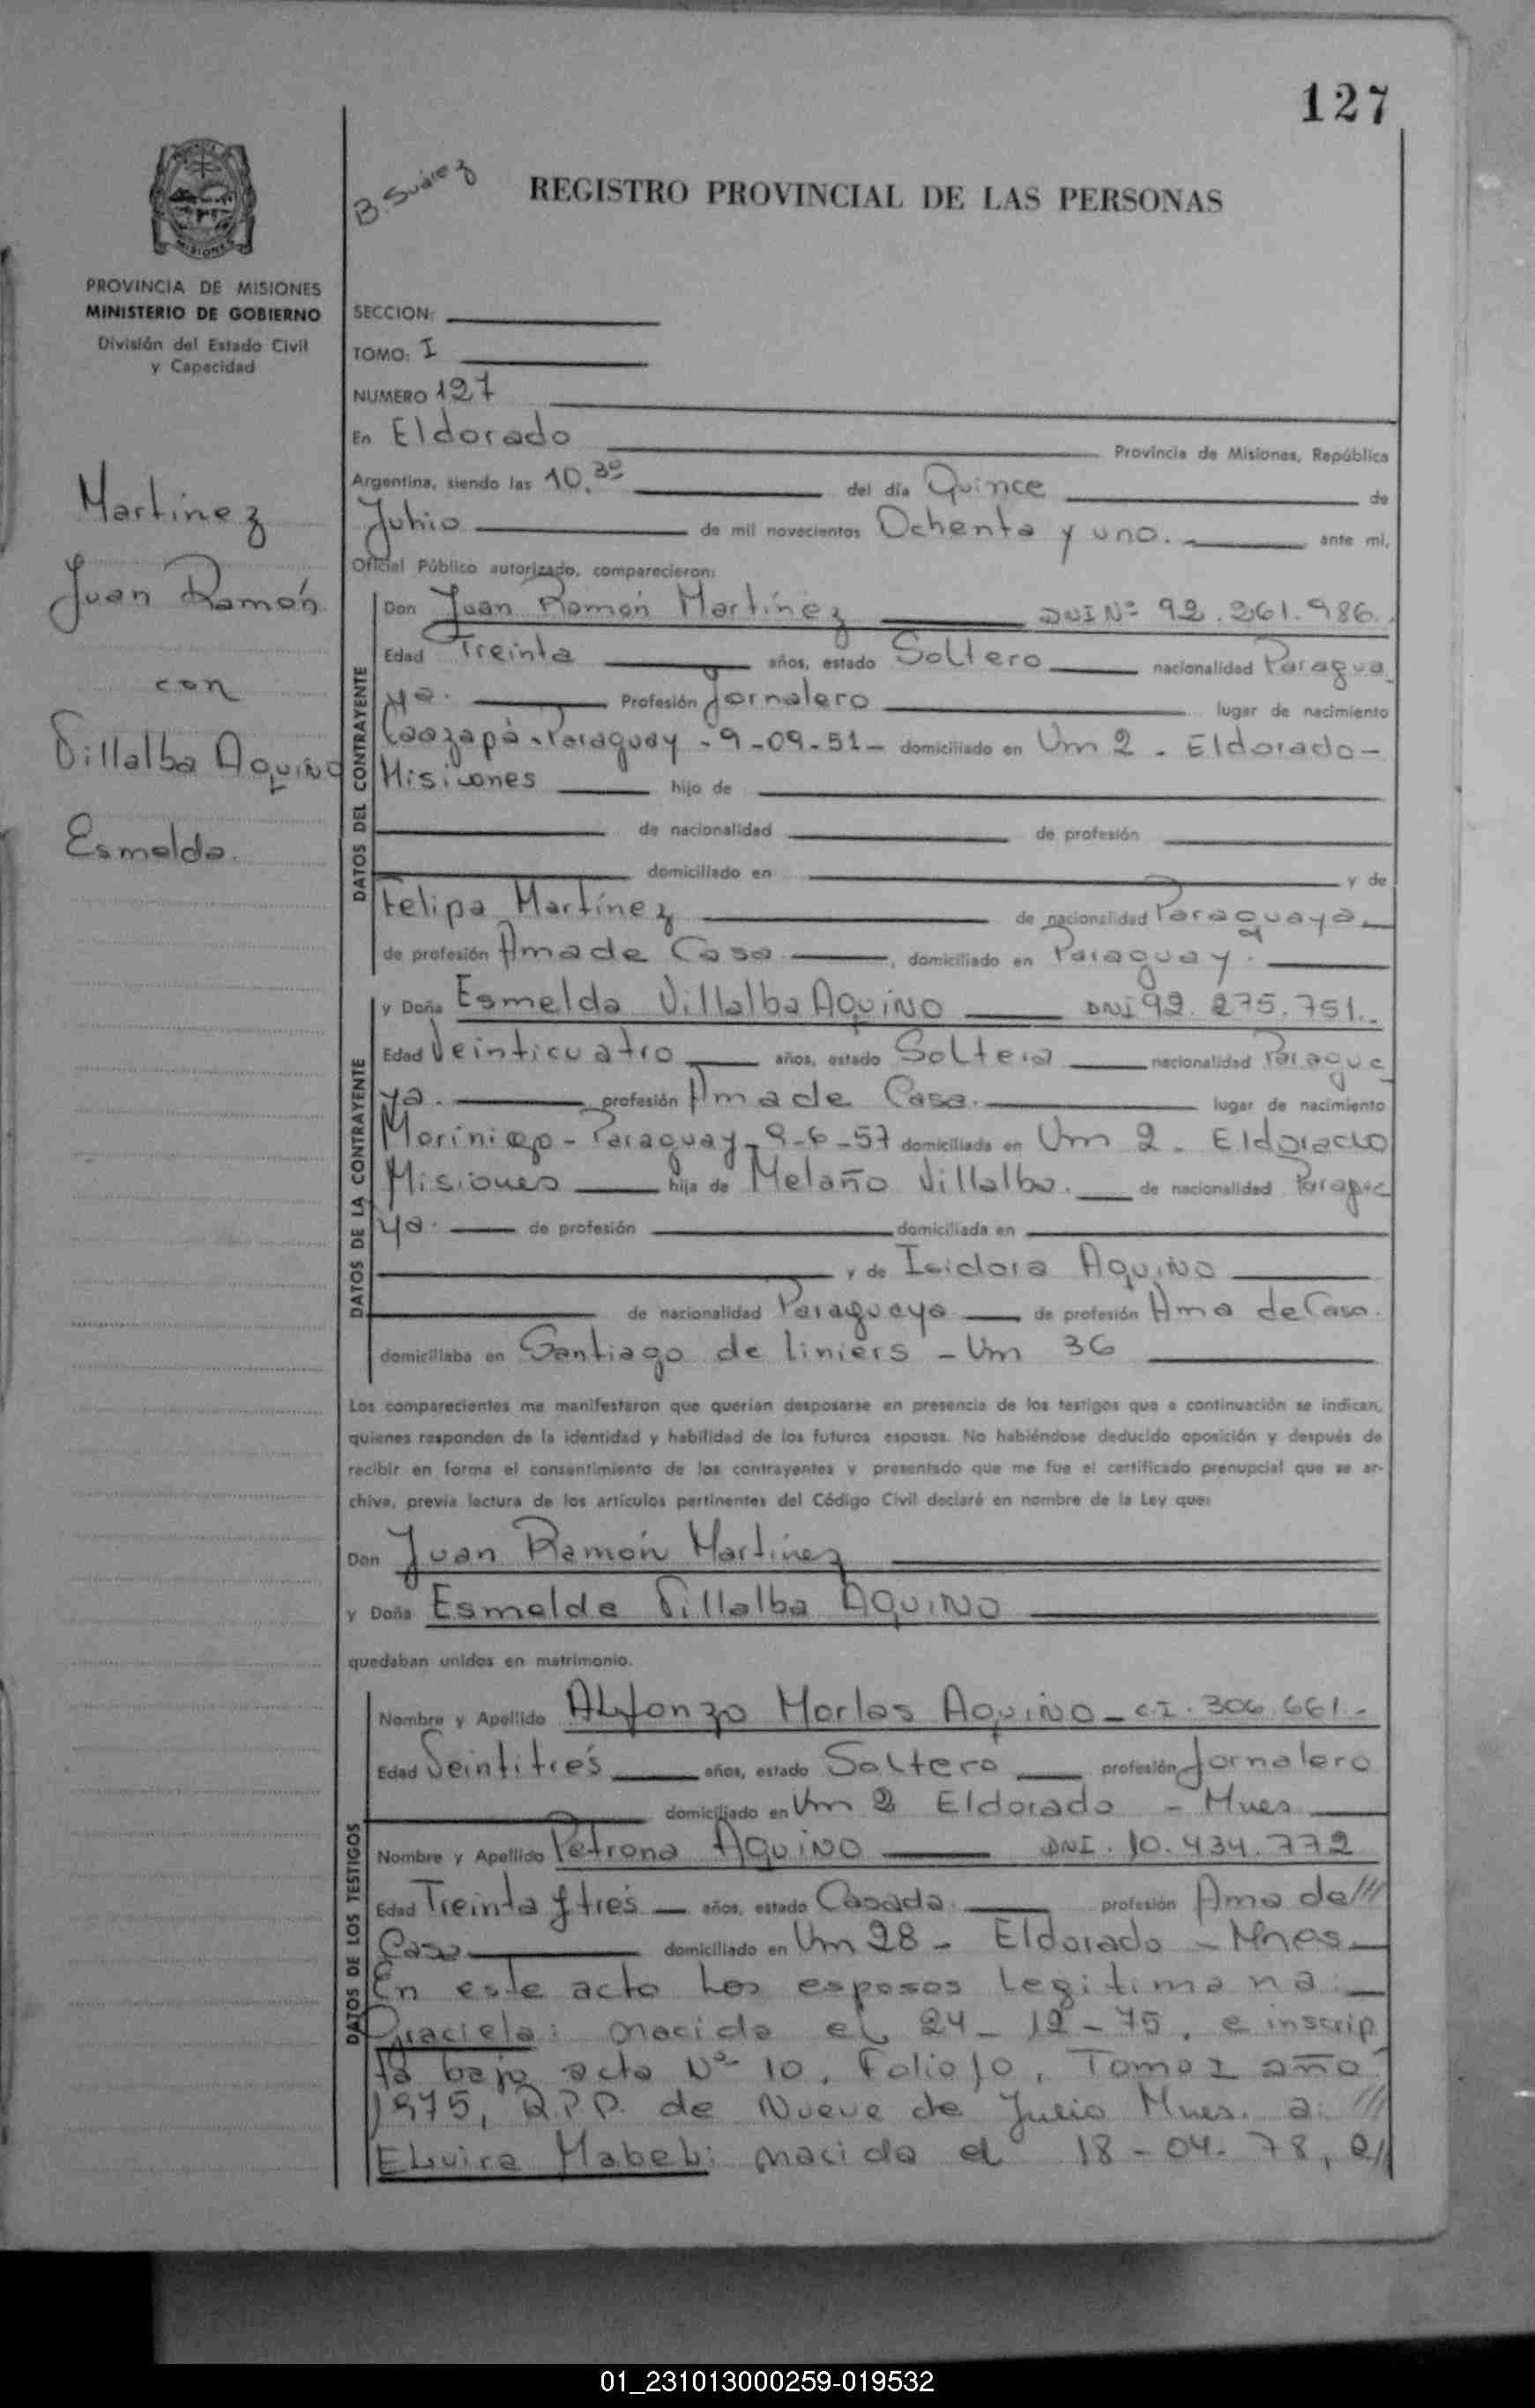 127
B. Suárez
REGISTRO PROVINCIAL DE LAS PERSONAS
MISIONES
PROVINCIA DE MISIONES
MINISTERIO DE GOBIERNO
División del Estado Civil
y Capacidad
Martinez
Juan Ramón
con
Villalba Aquino
Esmelda.
SECCION:
TOMO: I
NUMERO 127
En Eldorado Provincia de Misiones, República
Argentina, siendo las 10.30 del día Quince de
Junio de mil novecientos Ochenta y uno. ante mi,
Oficial Público autorizado, comparecieron:
DATOS DEL CONTRAYENTE
Don Juan Ramón Martínez DNI Nº 92.261.986.
Edad Treinta años, estado Soltero nacionalidad Paragua
ya. Profesión Jornalero lugar de nacimiento
Caazapá - Paraguay - 9-09-51 - domiciliado en Km 2 - Eldorado -
Misiones hijo de
de nacionalidad de profesión
domiciliado en y de
Felipa Martínez de nacionalidad Paraguaya
de profesión Ama de Casa , domiciliado en Paraguay.
DATOS DE LA CONTRAYENTE
y Doña Esmelda Villalba Aquino DNI 92.275.751.
Edad Veinticuatro años, estado Soltera nacionalidad Paragua
ya. profesión Ama de Casa. lugar de nacimiento
- Paraguay - 9-6-57 domiciliada en Km 2 - Eldorado
Misiones hija de Melaño Villalba. de nacionalidad Paragua
ya. de profesión domiciliada en
y de Isidora Aquino
de nacionalidad Paraguaya de profesión Ama de Casa.
domiciliaba en Santiago de liniers - Km 36
Los comparecientes me manifestaron que querían desposarse en presencia de los testigos que a continuación se indican,
quienes responden de la identidad y habilidad de los futuros esposos. No habiéndose deducido oposición y después de
recibir en forma el consentimiento de los contrayentes y presentado que me fue el certificado prenupcial que se ar-
chiva, previa lectura de los artículos pertinentes del Código Civil declaré en nombre de la Ley que:
Don Juan Ramón Martinez
y Doña Esmelda Villalba Aquino
quedaban unidos en matrimonio.
DATOS DE LOS TESTIGOS
Nombre y Apellido Alfonzo Morlas Aquino - C.I. 306.661.-
Edad Veintitrés años, estado Soltero profesión Jornalero
domiciliado en Km 2 Eldorado - Mnes
Nombre y Apellido Petrona Aquino DNI. 10.434.772
Edad Treinta y tres años, estado Casada. profesión Ama de ///
Casa domiciliado en Km 28 - Eldorado - Mnes
En este acto Los esposos Legitiman a:
Graciela: nacida el 24-12-75, e inscrip
ta bajo acta Nº 10, Folio 10, Tomo I año
1975, R.P.P. de Nueve de Julio Mnes. a: ///
Elvira Mabel: nacida el 18-04-78, e//
01_231013000259-019532